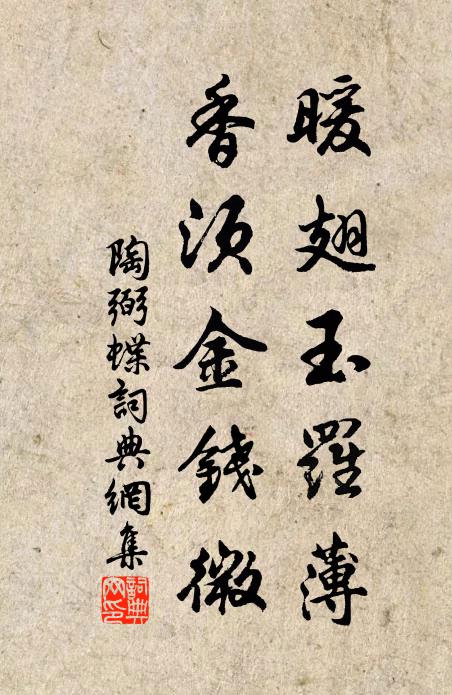 暖翅玉羅薄
香須金錢微
陶弼蝶詞典網集
詞典網印